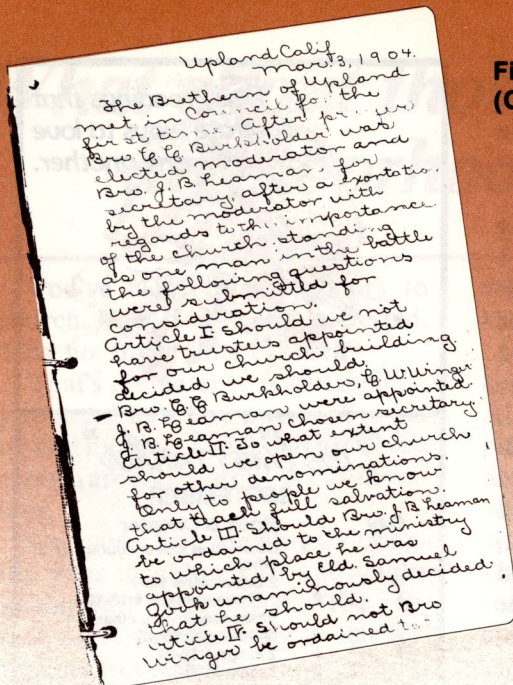 Upland Calif
Mar 3, 1904.
The Brethern of Upland
met in Council for the
first time. After prayer
Bro. C C Burkholder was
elected moderator and
Bro. J. B. Leaman for
secretary. after a exortation
by the moderator with
regards to the importance
of the church standing
as one man in the battle
the following questions
were submitted for
consideration.
Article I: Should we not
have trustees appointed
for our church building.
decided we should.
Bro. C C Burkholder, C W. Winger
J. B. Leaman were appointed
J. B. Leaman chosen secretary.
Article II: To what extent
should we open our church
for other denominations.
Only to people we know
that teach full salvation.
Article III: Should Bro. J. B Leaman
be ordained to the ministry
to which place he was
appointed by Eld. Samuel
unamimously decided
that he should.
Article IV: Should not Bro
Winger be ordained to
Fi
(C